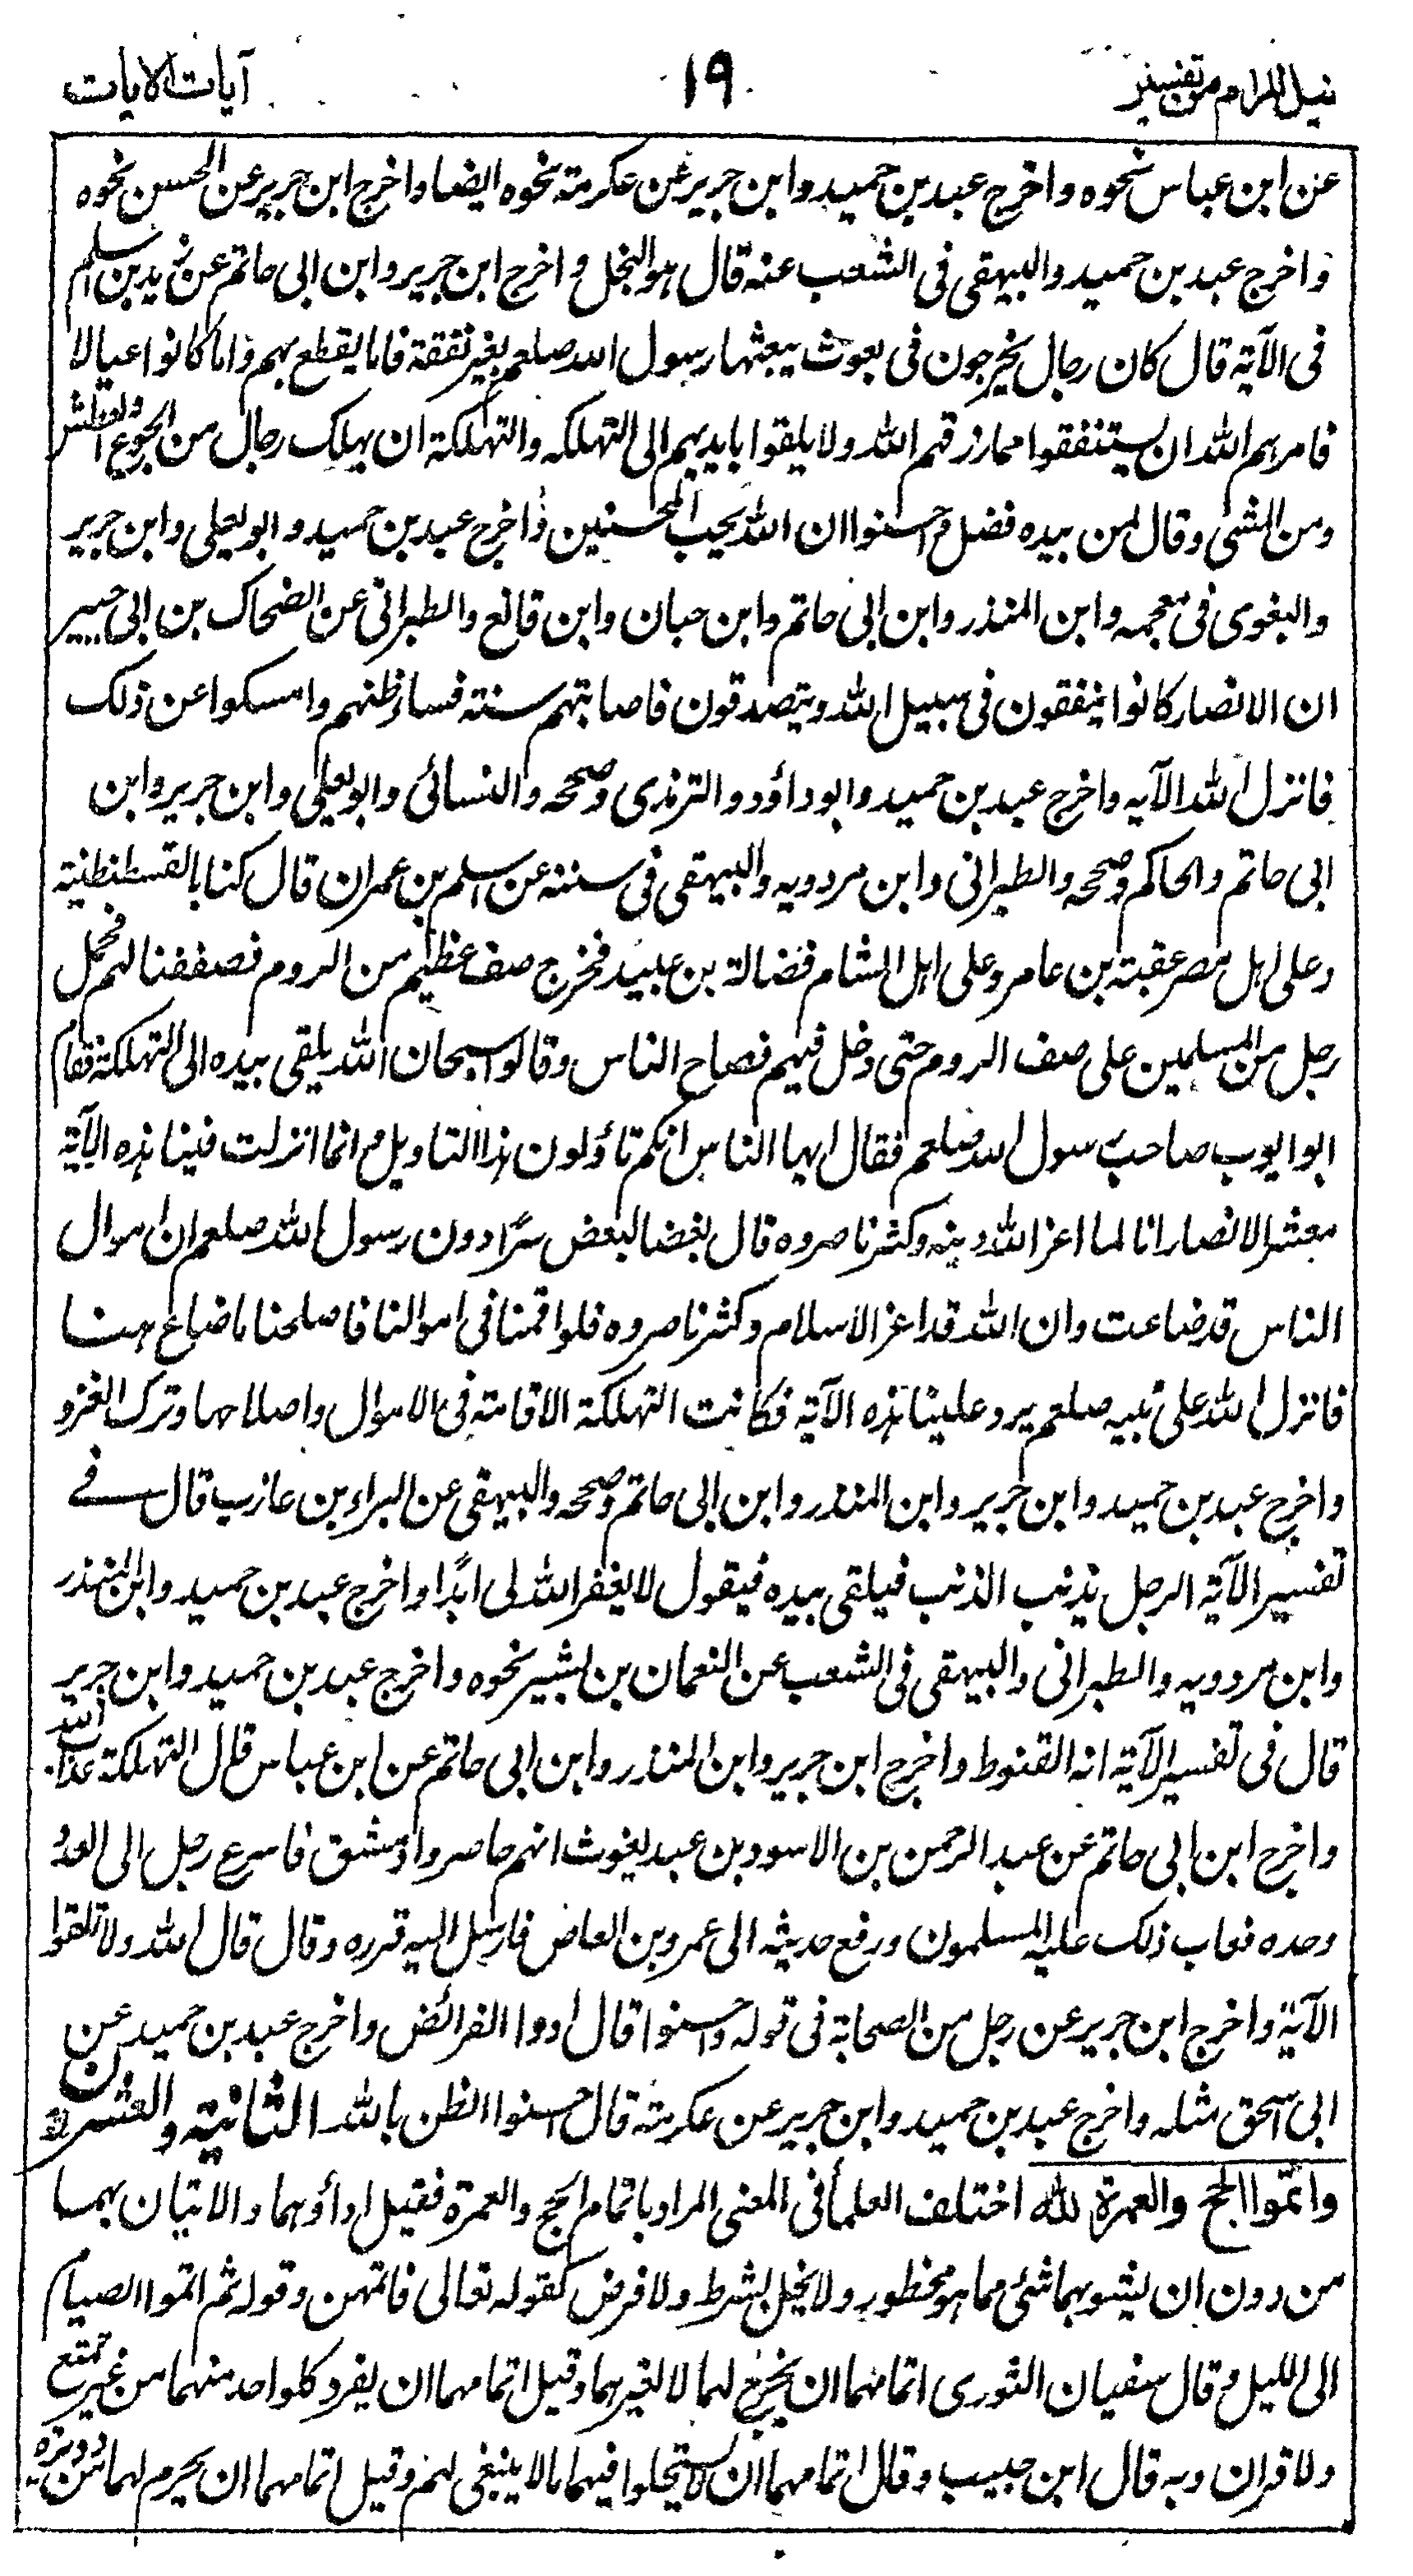 نيل المرام من تفسير
١٩
آيات الآيات
عن ابن عباس نحوه واخرج عبد بن حميد وابن جرير عن عكرمة نحوه ايضا واخرج ابن جرير عن الحسن نحوه
واخرج عبد بن حميد والبيهقى فى الشعب عنه قال هو البخل واخرج ابن جرير وابن ابى حاتم عن زيد بن اسلم
فى الآية قال كان رجال يخرجون فى بعوث يبعثها رسول الله صلعم بغير نفقة فاما يقطع بهم واما كانوا عيالا
فامرهم الله ان يستنفقوا مما رزقهم الله ولا يلقوا بايديهم الى التهلكه والتهلكة ان يهلك رجال من الجوع والعطش
ومن المشى وقال لمن بيده فضل واحسنوا ان الله يحب المحسنين واخرج عبد بن حميد وابو يعلى وابن جرير
والبغوى فى معجمه وابن المنذر وابن ابى حاتم وابن حبان وابن قانع والطبرانى عن الضحاك بن ابى جبير
ان الانصار كانوا ينفقون فى سبيل الله ويتصدقون فاصابتهم سنة فساء ظنهم وامسكوا عن ذلك
فانزل الله الآيه واخرج عبد بن حميد وابو داؤد والترمذى وصححه والنسائى وابو يعلى وابن جرير وابن
ابى حاتم والحاكم وصححه والطبرانى وابن مردويه والبيهقى فى سننه عن اسلم بن عمران قال كنا بالقسطنطنية
وعلى اهل مصر عقبة بن عامر وعلى اهل الشام فضالة بن عبيد فخرج صف عظيم من الروم فصففنا لهم فحمل
رجل من المسلمين على صف الروم حتى دخل فيهم فصاح الناس وقالوا سبحان الله يلقى بيده الى التهلكة فقام
ابو ايوب صاحب رسول الله صلعم فقال ايها الناس انكم تاؤلون هذا التاويل وانما انزلت فينا هذه الآية
معشر الانصار انا لما اعز الله دينه وكثر ناصروه قال بعضنا لبعض سرًا دون رسول الله صلعم ان اموال
الناس قد ضاعت وان الله قد اعز الاسلام وكثر ناصروه فلو اقمنا فى اموالنا فاصلحنا ما ضاع منا
فانزل الله على نبيه صلعم يرد علينا هذه الآية فكانت التهلكة الاقامة فى الاموال واصلاحها وترك الغزو
واخرج عبد بن حميد وابن جرير وابن المنذر وابن ابى حاتم وصححه والبيهقى عن البراء بن عازب قال فى
تفسير الآية الرجل يذنب الذنب فيلقى بيده فيقول لا يغفر الله لى ابدًا واخرج عبد بن حميد وابن المنذر
وابن مردويه والطبرانى والبيهقى فى الشعب عن النعمان بن بشير نحوه واخرج عبد بن حميد وابن جرير
قال فى تفسير الآية انه القنوط واخرج ابن جرير وابن المنذر وابن ابى حاتم عن ابن عباس قال التهلكة عذاب الله
واخرج ابن ابى حاتم عن عبد الرحمن بن الاسود بن عبد يغوث انهم حاصروا دمشق فاسرع رجل الى العدو
وحده فعاب ذلك عليه المسلمون ورفع حديثه الى عمرو بن العاص فارسل اليه فرده وقال قال الله ولا تلقوا
الآية واخرج ابن جرير عن رجل من الصحابة فى قوله واحسنوا قال ادوا الفرائض واخرج عبد بن حميد عن
ابى اسحق مثله واخرج عبد بن حميد وابن جرير عن عكرمة قال احسنوا الظن بالله الثانية والعشرون
واتموا الحج والعمرة لله اختلف العلماء فى المعنى المراد باتمام الحج والعمرة فقيل اداؤهما والاتيان بهما
من دون ان يشوبهما شئ مما هو محظور ولا يخل بشرط ولا فرض كقوله تعالى فاتمهن وقوله ثم اتموا الصيام
الى الليل وقال سفيان الثورى اتمامهما ان يخرج لهما لا لغيرهما وقيل اتمامهما ان يفرد كلوا حد منهما من غير تمتع
ولا قران وبه قال ابن حبيب وقال اتمامهما ان لا يستحلوا فيهما ما لا ينبغى لهم وقيل اتمامهما ان يحرم لهما من دويرة